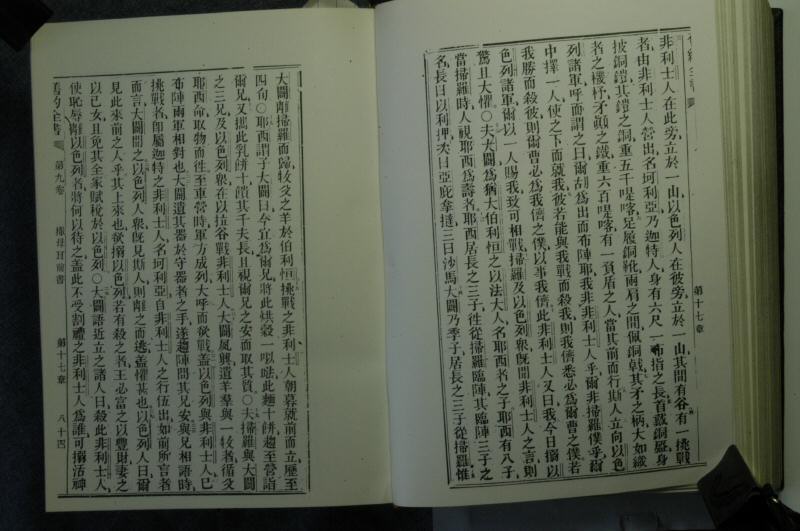 舊約全書
非利士人在此旁立於一山以色列人在彼旁立於一山其間有谷有一挑戰
者由非利士人營出名坷利亞乃迦特人身有六尺一布指之長首戴銅盔身
披銅鎧其鎧之銅重五千是喀足履銅靴兩肩之間佩銅戟其矛之柄大如織
者之櫌杼矛巔之鐵重六百是喀有一負盾之人當其前而行斯人立向以色
列諸軍呼而謂之曰爾曷為出而布陣耶我非非利士人乎爾非掃羅僕乎爾
中擇一人使之下而就我彼若能與我戰而殺我則我儕悉必為爾曹之僕若
我勝而殺彼則爾曹必為我儕之僕以事我儕此非利士人又曰我今日搦以
色列諸軍爾以一人賜我致可相戰掃羅及以色列衆既聞非利士人之言則
驚且大懼○夫大闢為猶大伯利恒之以法大人名耶西者之子耶西有八子
當掃羅時人視耶西為壽者耶西居長之三子徃從掃羅臨陣其臨陣三子之
名長曰以利押次曰亞庇拿撻三曰沙馬大闢乃季子居長之三子從掃羅惟
第十七章
大闢離掃羅而歸牧父之羊於伯利恒挑戰之非利士人朝暮就前而立歷至
四旬○耶西謂子大闢曰今宜為爾兄將此烘穀一以咶此麵十餅趨至營詣
爾兄又攜此乳餅十饋其千夫長且視爾兄之安而取其質○夫掃羅與大闢
之三兄及以色列衆在以拉谷戰非利士人大闢夙興遺羊羣與一牧者循父
耶西命取物而徃至車營時軍方成列大呼而欲戰蓋以色列與非利士人已
布陣兩軍相對也大闢遺其器於守器者之手遂趨陣問其兄安與兄相語時
挑戰者即屬迦特之非利士人名坷利亞自非利士人之行伍出如前所言者
而言大闢聞之以色列人衆既見斯人則離之而逃蓋懼甚也以色列人曰爾
見此來前之人乎其上來也欲搦以色列若有殺之者王必富之以豐財妻之
以己女且免其全家賦稅於以色列○大闢語近立之諸人曰殺此非利士人
使恥辱離以色列者將何以待之蓋此不受割禮之非利士人為誰可搦活神
舊約全書
第九卷
撒母耳前書
第十七章
八十四